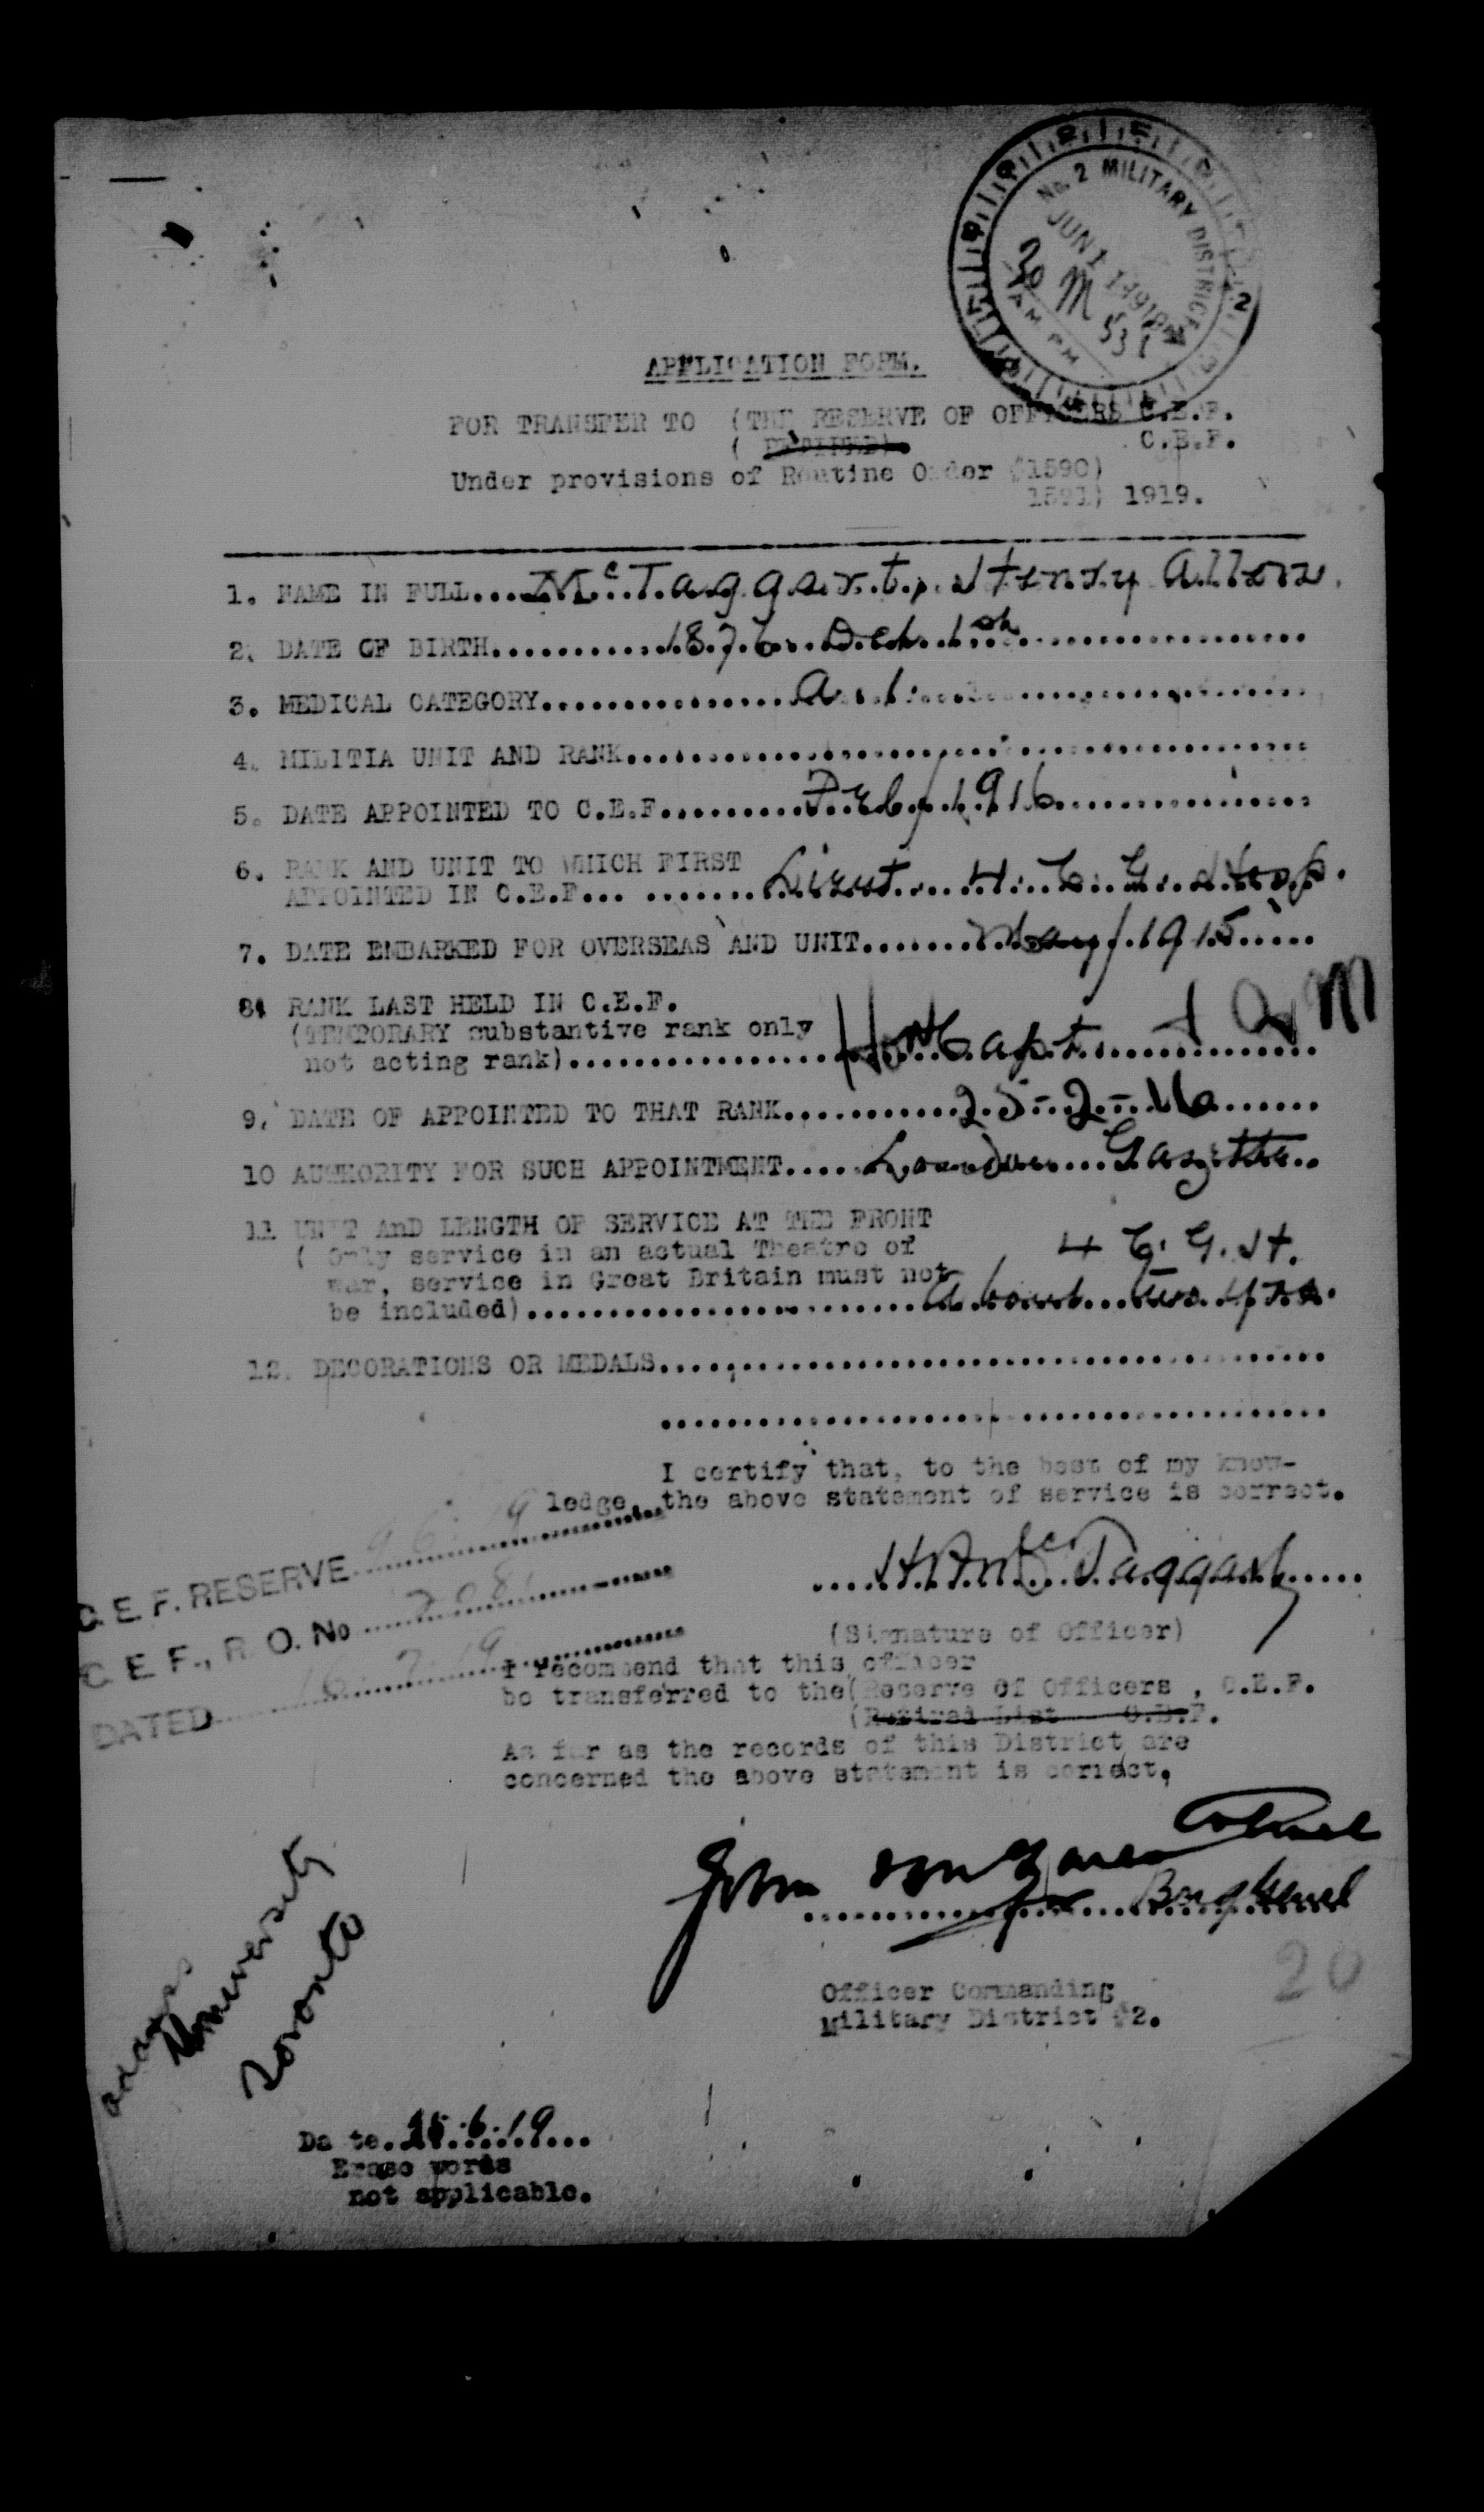 No. 2 MILITARY DISTRICT
JUN 1 1919
AM PM
20 M 531
APPLICATION FORM.
FOR TRANSFER TO (THE RESERVE OF OFFICERS C.E.F.
( C.E.F.
Under provisions of Routine Order (1590)
1591) 1919.
1. NAME IN FULL....McTaggart, Henry Allen.
2. DATE OF BIRTH............1876 Oct. 1st
3. MEDICAL CATEGORY...............A. 1.
4. MILITIA UNIT AND RANK
5. DATE APPOINTED TO C.E.F.........Feby 1916
6. RANK AND UNIT TO WHICH FIRST
APPOINTED IN C.E.F... .......Lieut. 4. C. G. Hosp.
7. DATE EMBARKED FOR OVERSEAS AND UNIT.......May 1915
8. RANK LAST HELD IN C.E.F.
(TEMPORARY substantive rank only
not acting rank)................Hon Capt. + QM
9. DATE OF APPOINTED TO THAT RANK...........25-2-16
10 AUTHORITY FOR SUCH APPOINTMENT.....London Gazette
11 UNIT AnD LENGTH OF SERVICE AT THE FRONT
( Only service in an actual Theatre of 4 C. G. H.
war, service in Great Britain must not
be included)....................About two yrs.
12. DECORATIONS OR MEDALS
I certify that, to the best of my know-
ledge, the above statement of service is correct.
H.A. McTaggart
(Signature of Officer)
C. E. F. RESERVE
C. E. F., R. O. No
DATED
I recommend that this officer
be transferred to the(Reserve Of Officers , C.E.F.
(Retired List C.E.F.
As far as the records of this District are
concerned the above statement is correct.
John Colonel
for Brig Genel
Officer Commanding
Military District #2.
20
University
Toronto
Da te. 6.19
Erase words
not applicable.